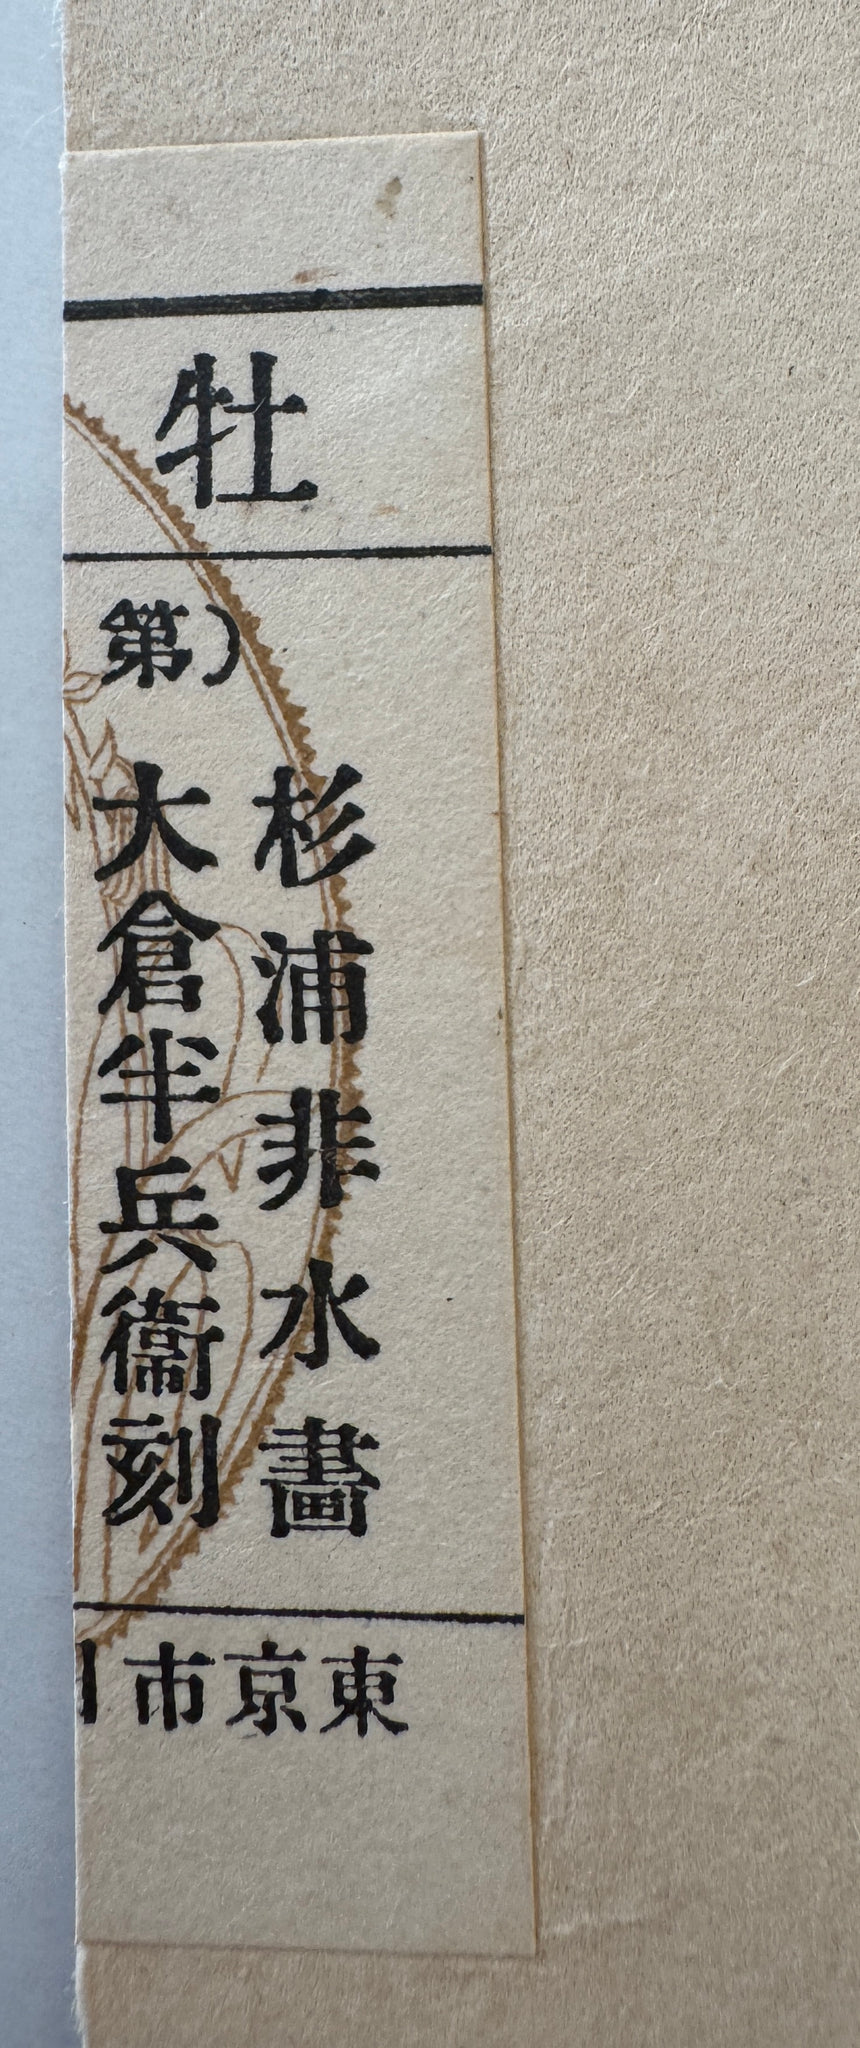 牡
杉浦非水畫
(第
大倉半兵衞刻
東京市